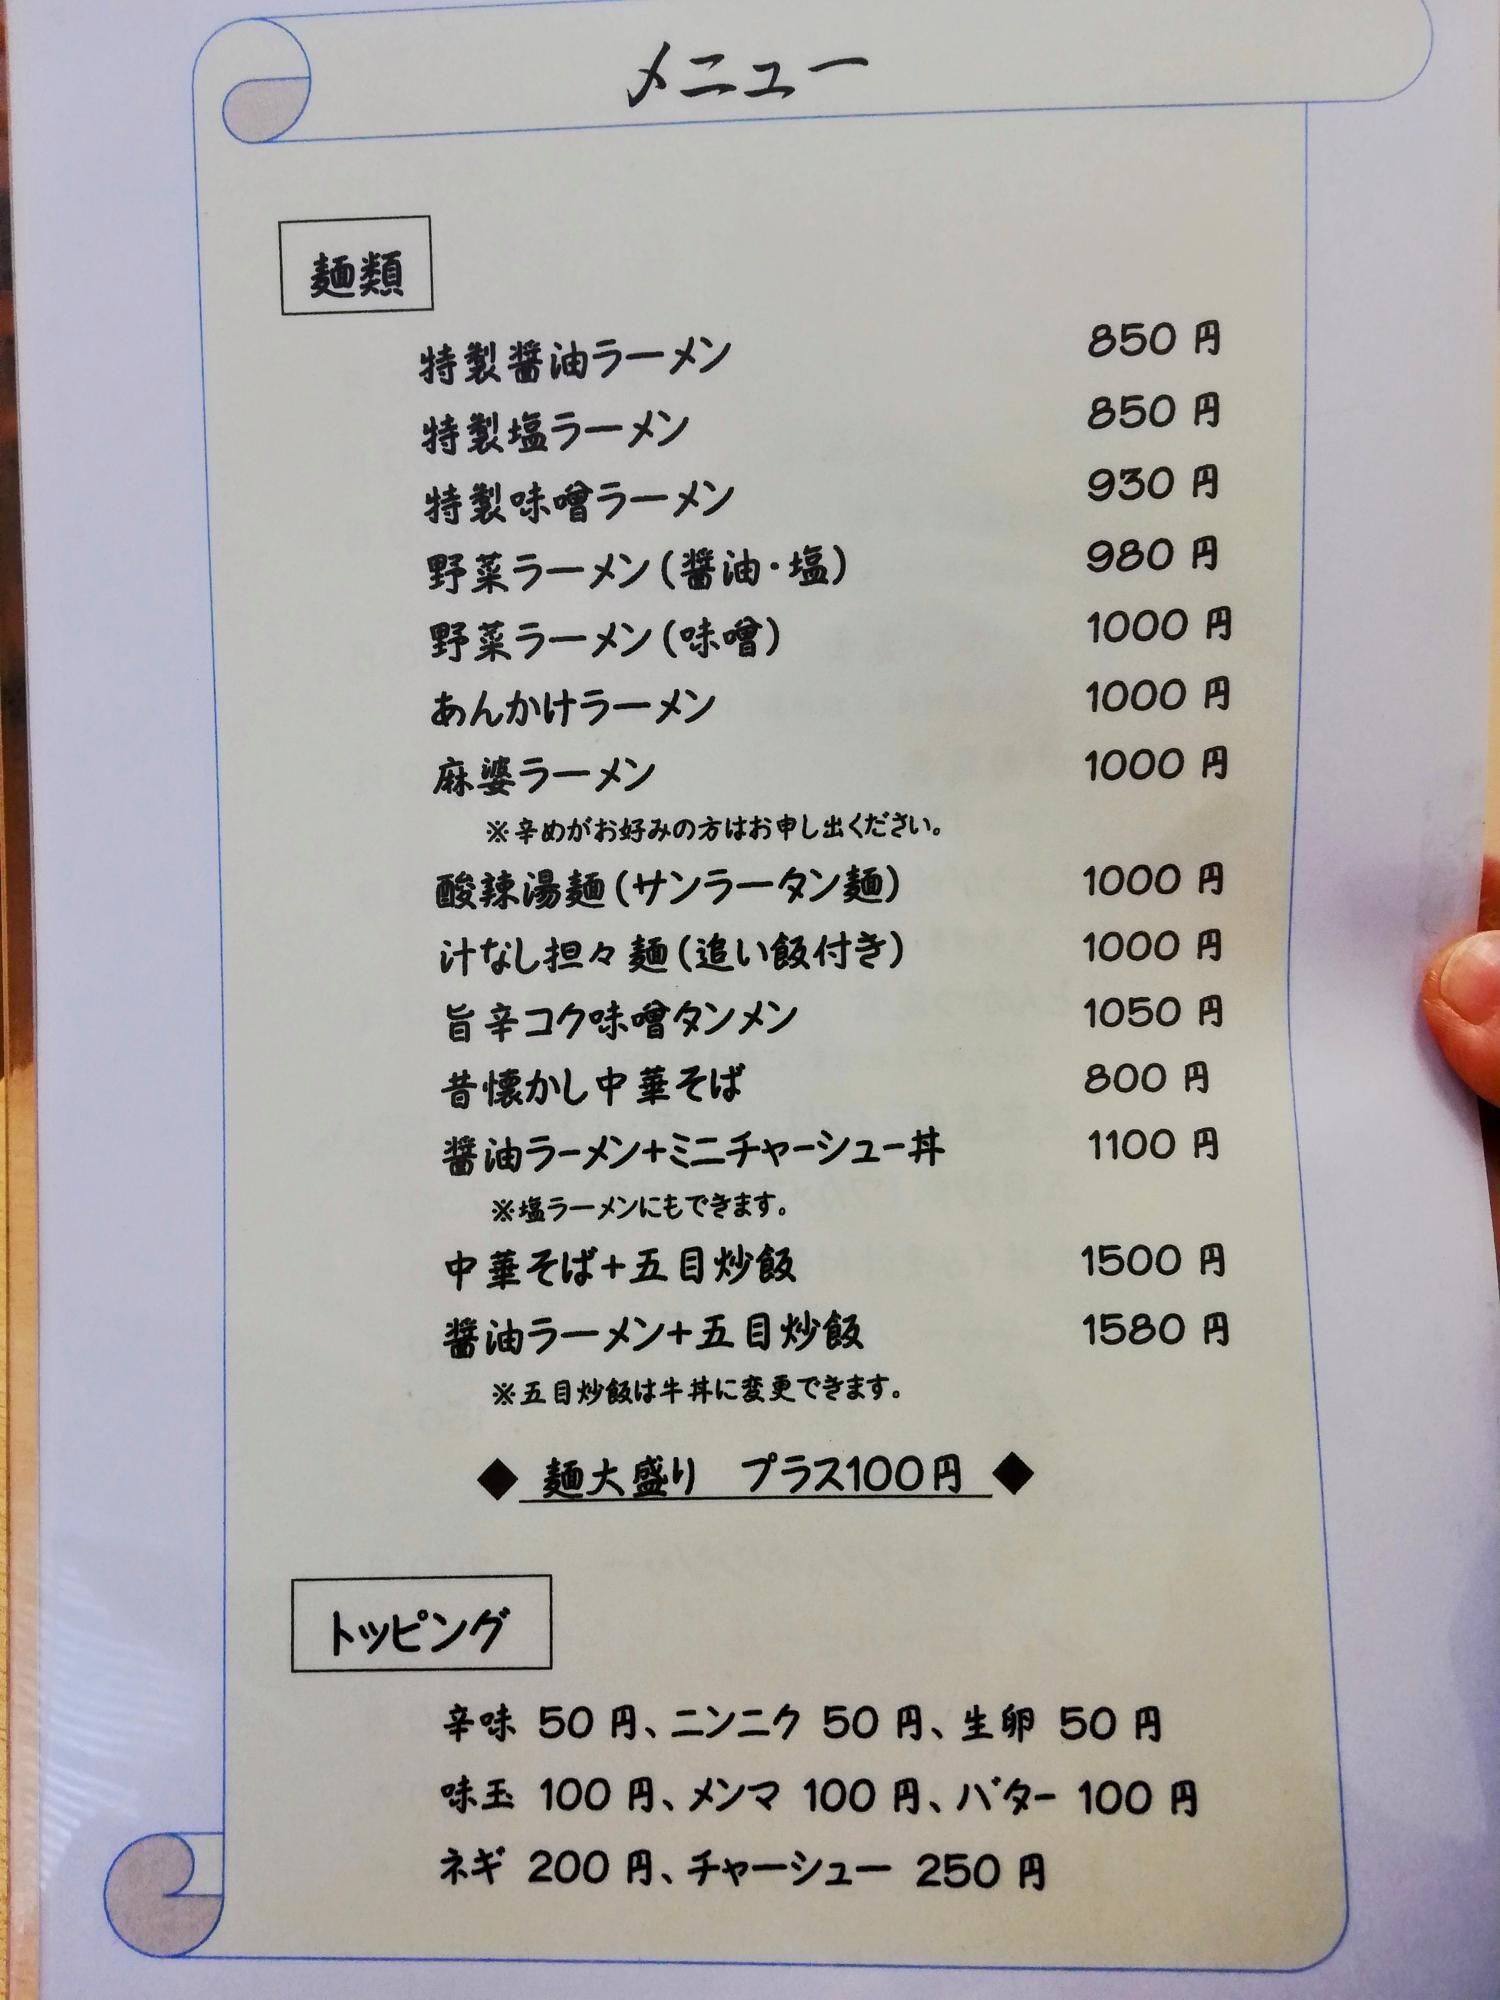 メニュー
麺類
特製醤油ラーメン 850 円
特製塩ラーメン 850 円
特製味噌ラーメン 930 円
野菜ラーメン(醤油・塩) 980 円
野菜ラーメン(味噌) 1000 円
あんかけラーメン 1000 円
麻婆ラーメン 1000 円
※辛めがお好みの方はお申し出ください。
酸辣湯麺(サンラータン麺) 1000 円
汁なし担々麺(追い飯付き) 1000 円
旨辛コク味噌タンメン 1050 円
昔懐かし中華そば 800 円
醤油ラーメン+ミニチャーシュー丼 1100 円
※塩ラーメンにもできます。
中華そば+五目炒飯 1500 円
醤油ラーメン+五目炒飯 1580 円
※五目炒飯は牛丼に変更できます。
◆ 麺大盛り プラス100円 ◆
トッピング
辛味 50 円、ニンニク 50 円、生卵 50 円
味玉 100 円、メンマ 100 円、バター 100 円
ネギ 200 円、チャーシュー 250 円